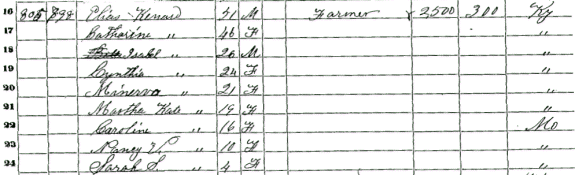 16 805 898 Elias Kenard 51 M Farmer 2,500 300 Ky
17 Catharine " 46 F "
18 Isabel " 26 M "
19 Cynthia " 24 F "
20 Minerva " 21 F "
21 Martha Kate " 19 F "
22 Caroline " 16 F Mo
23 Nancy V. " 10 F "
24 Sarah S. " 4 F "